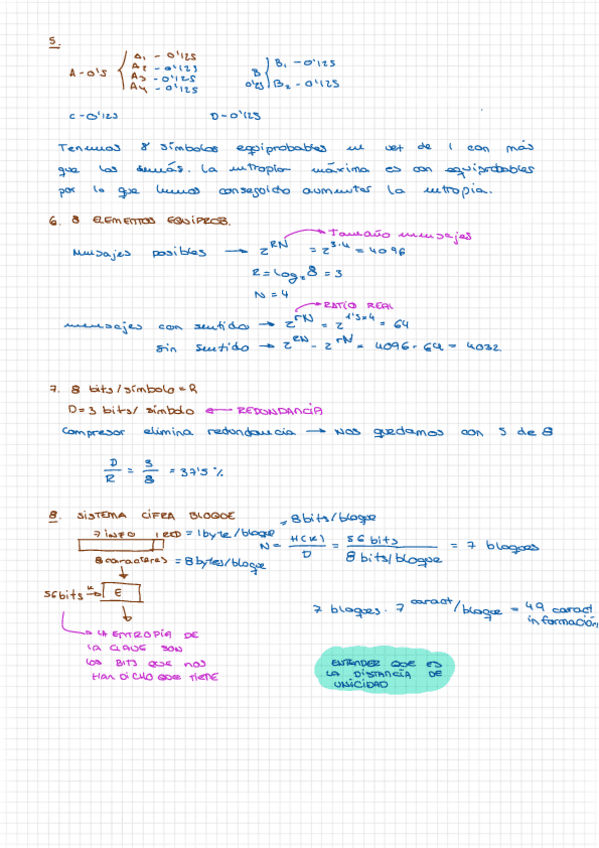 5.
A - 0'5 A1 - 0'125
A2 - 0'125
A3 - 0'125
A4 - 0'125
B 0'25 B1 - 0'125
B2 - 0'125
C - 0'125 D - 0'125
Tenemos 8 símbolos equiprobables en vez de 1 con más
que los demás. La entropía máxima es con equiprobables
por lo que hemos conseguido aumentar la entropía.
6. 8 ELEMENTOS EQUIPROB.
Tamaño mensajes
Mensajes posibles → 2^RN = 2^3·4 = 4096
R = log2 8 = 3
N = 4
RATIO REAL
mensajes con sentido → 2^rN = 2^1'5×4 = 64
sin sentido → 2^RN - 2^rN = 4096 - 64 = 4032
7. 8 bits/símbolo = R
D = 3 bits/símbolo ← REDONDANCIA
Compresor elimina redondancia → Nos quedamos con 5 de 8
D/R = 3/8 = 37'5 %
8. SISTEMA CIFRA BLOQUE
7 INFO 1 RED = 1 byte/bloque = 8 bits/bloque
8 caracteres = 8 bytes/bloque
N = H(K)/D = 56 bits / 8 bits/bloque = 7 bloques
56 bits K → E
7 bloques · 7 caract/bloque = 49 caract
información
LA ENTROPÍA DE
LA CLAVE SON
LOS BITS QUE NOS
HAN DICHO QUE TIENE
ENTENDER QUE ES
LA DISTANCIA DE
UNICIDAD